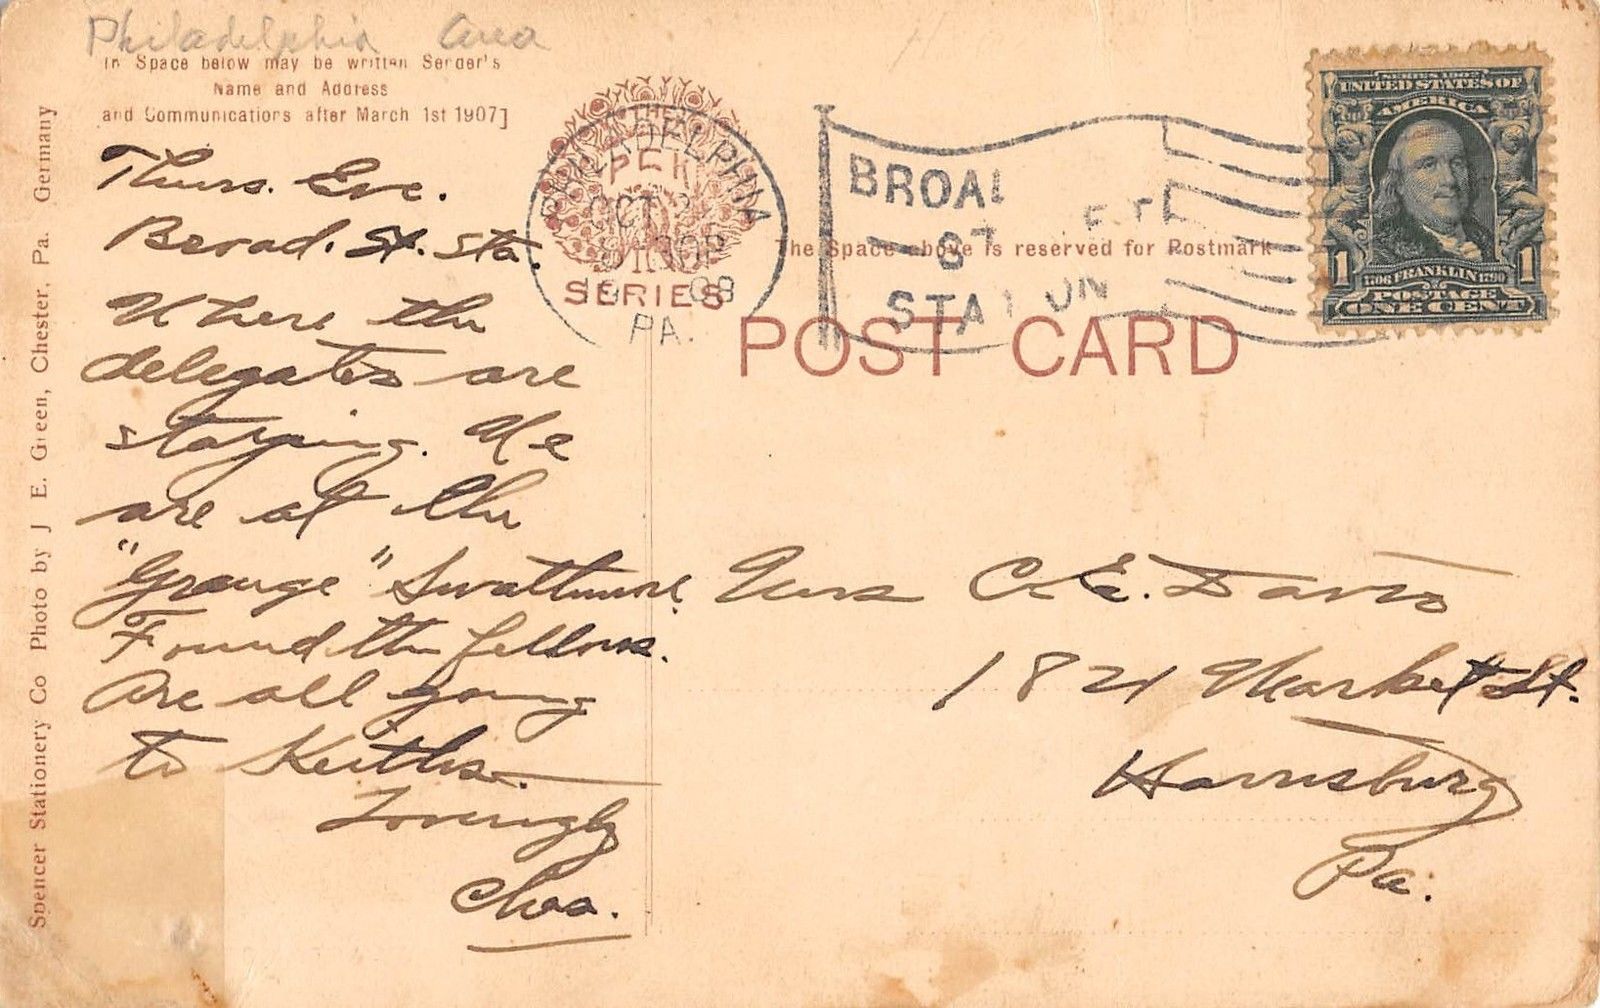 Philadelphia Area
In Space below may be written Sender's
Name and Address
and Communications after March 1st 1907]
Thurs. Eve.
Broad. St. Sta.
Where the
delegates are
staying. We
are at the
"Grange" Swathmore.
Found the fellows.
Are all going
to Keiths.
Lovingly
Chas.
Spencer Stationery Co Photo by J E. Green, Chester, Pa. Germany
THE
PCK
SERIES
PHILADELPHIA
OCT
PA.
BROAD
ST
STATION
The Space above is reserved for Postmark
POST CARD
SERIES 1902
UNITED STATES OF
AMERICA
1706 FRANKLIN 1790
1 POSTAGE 1
ONE CENT
Mrs C. E. Davis
1821 Market St.
Harrisburg
Pa.